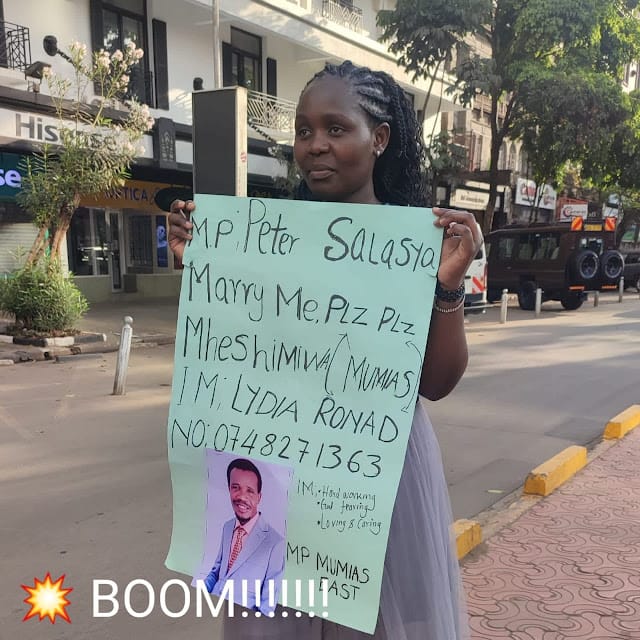 Hisense
se
M.P; Peter Salasya
Marry Me, PLZ PLZ
Mheshimiwa (MUMIAS)
IM; LYDIA RONAD
NO; 0748271363
IM; • Hard working
• God fearing
• Loving & Caring
MP MUMIAS
EAST
BOOM!!!!!!!